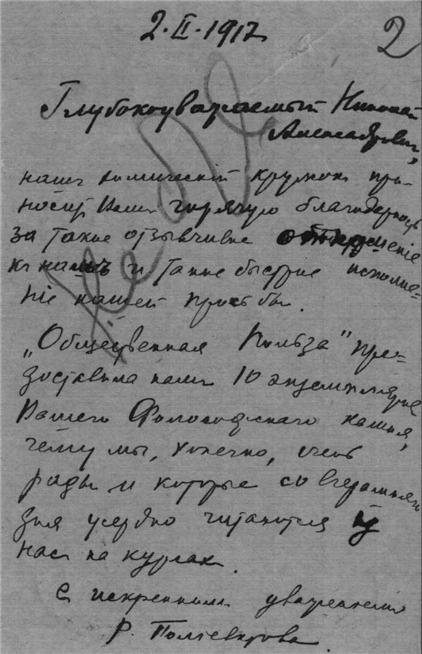 2·II·1917
2
Глубокоуважаемый Николай
Александрович,
нашъ химическій кружокъ при-
носитъ Вамъ горячую благодарность
за такое отзывчивое отношеніе
къ намъ и такое быстрое исполне-
ніе нашей просьбы.
„Общественная Польза" пре-
доставила намъ 10 экземпляровъ
Вашего Философскаго камня,
чему мы, конечно, очень
рады и которые со вчерашняго
дня усердно читаются у
насъ на курсахъ.
Съ искреннимъ уваженіемъ
Р.